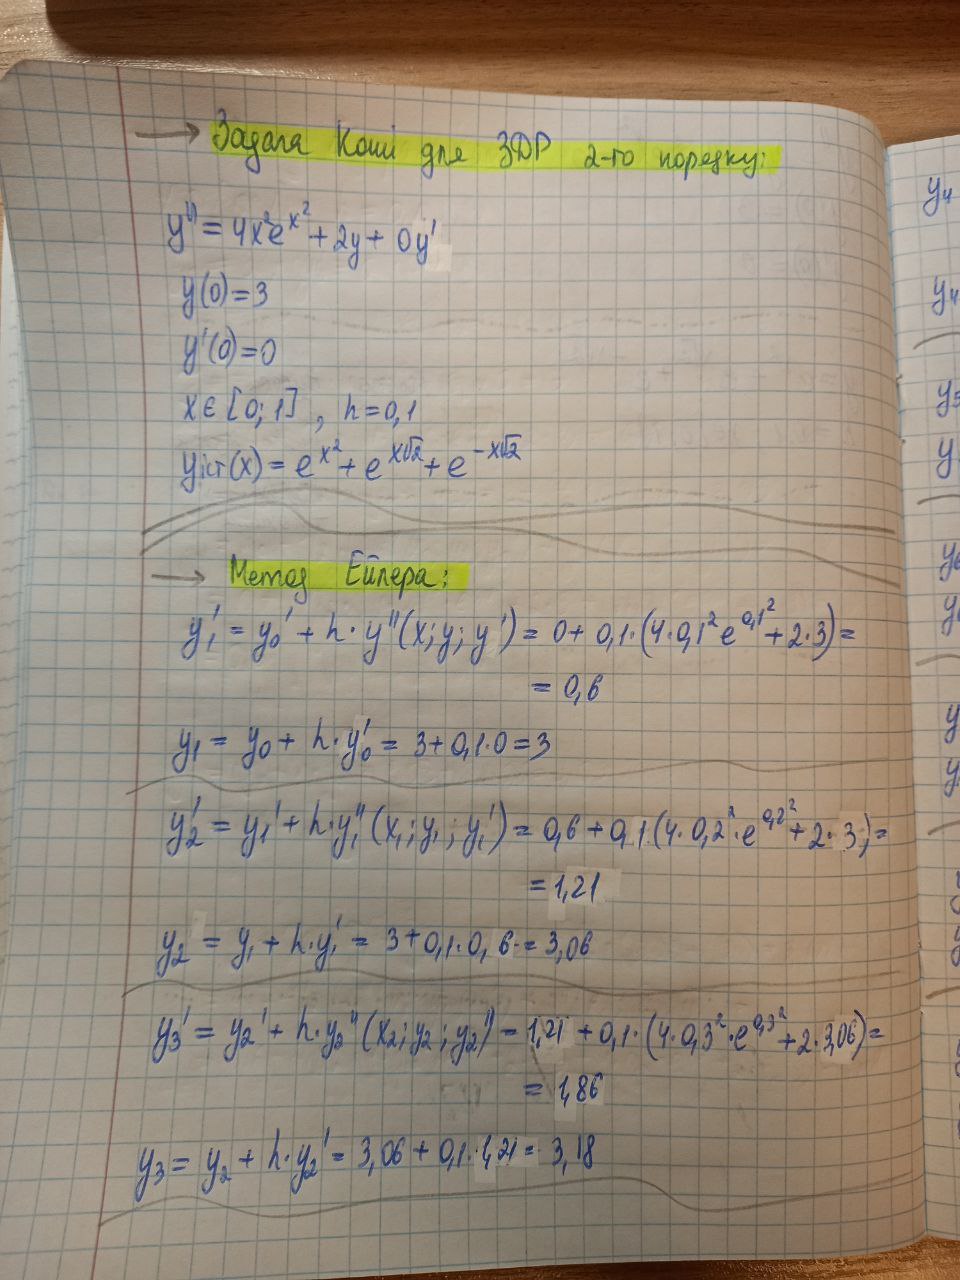 → Задача Коші для ЗДР 2-го порядку:
y'' = 4x²e^x² + 2y + 0y'
y(0) = 3
y'(0) = 0
x ∈ [0; 1] , h = 0,1
yіст(x) = e^x² + e^x√2 + e^-x√2
→ Метод Ейлера:
y₁' = y₀' + h · y''(x; y; y') = 0 + 0,1 · (4 · 0,1² e^0,1² + 2 · 3) =
= 0,6
y₁ = y₀ + h · y₀' = 3 + 0,1 · 0 = 3
y₂' = y₁' + h · y₁''(x₁; y₁; y₁') = 0,6 + 0,1 · (4 · 0,2² · e^0,2² + 2 · 3) =
= 1,21
y₂ = y₁ + h · y₁' = 3 + 0,1 · 0,6 = 3,06
y₃' = y₂' + h · y₂''(x₂; y₂; y₂') = 1,21 + 0,1 · (4 · 0,3² · e^0,3² + 2 · 3,06) =
= 1,86
y₃ = y₂ + h · y₂' = 3,06 + 0,1 · 1,21 = 3,18
y₄
y₄